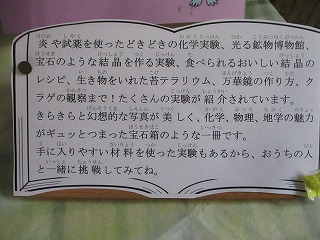 炎や試薬を使ったどきどきの化学実験、光る鉱物博物館、
宝石のような結晶を作る実験、食べられるおいしい結晶の
レシピ、生き物をいれた苔テラリウム、万華鏡の作り方、ク
ラゲの観察まで！たくさんの実験が紹介されています。
きらきらと幻想的な写真が美しく、化学、物理、地学の魅力
がギュッとつまった宝石箱のような一冊です。
手に入りやすい材料を使った実験もあるから、おうちの人
と一緒に挑戦してみてね。